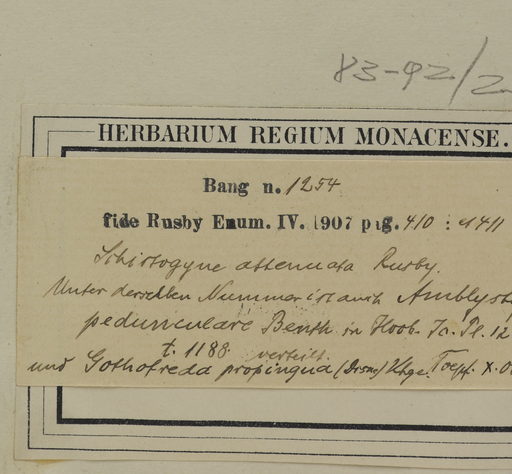 83-92/2
HERBARIUM REGIUM MONACENSE.
Bang n. 1254
fide Rusby Enum. IV. 1907 pag. 410 : 411
Schistogyne attenuata Rusby.
Unter derselben Nummer ist auch Amblyst
pedunculare Benth. in Hook. Ic. Pl. 12
t. 1188 verteilt.
und Gothofreda propinqua (Dcsne) Ktze. Toepf. X.